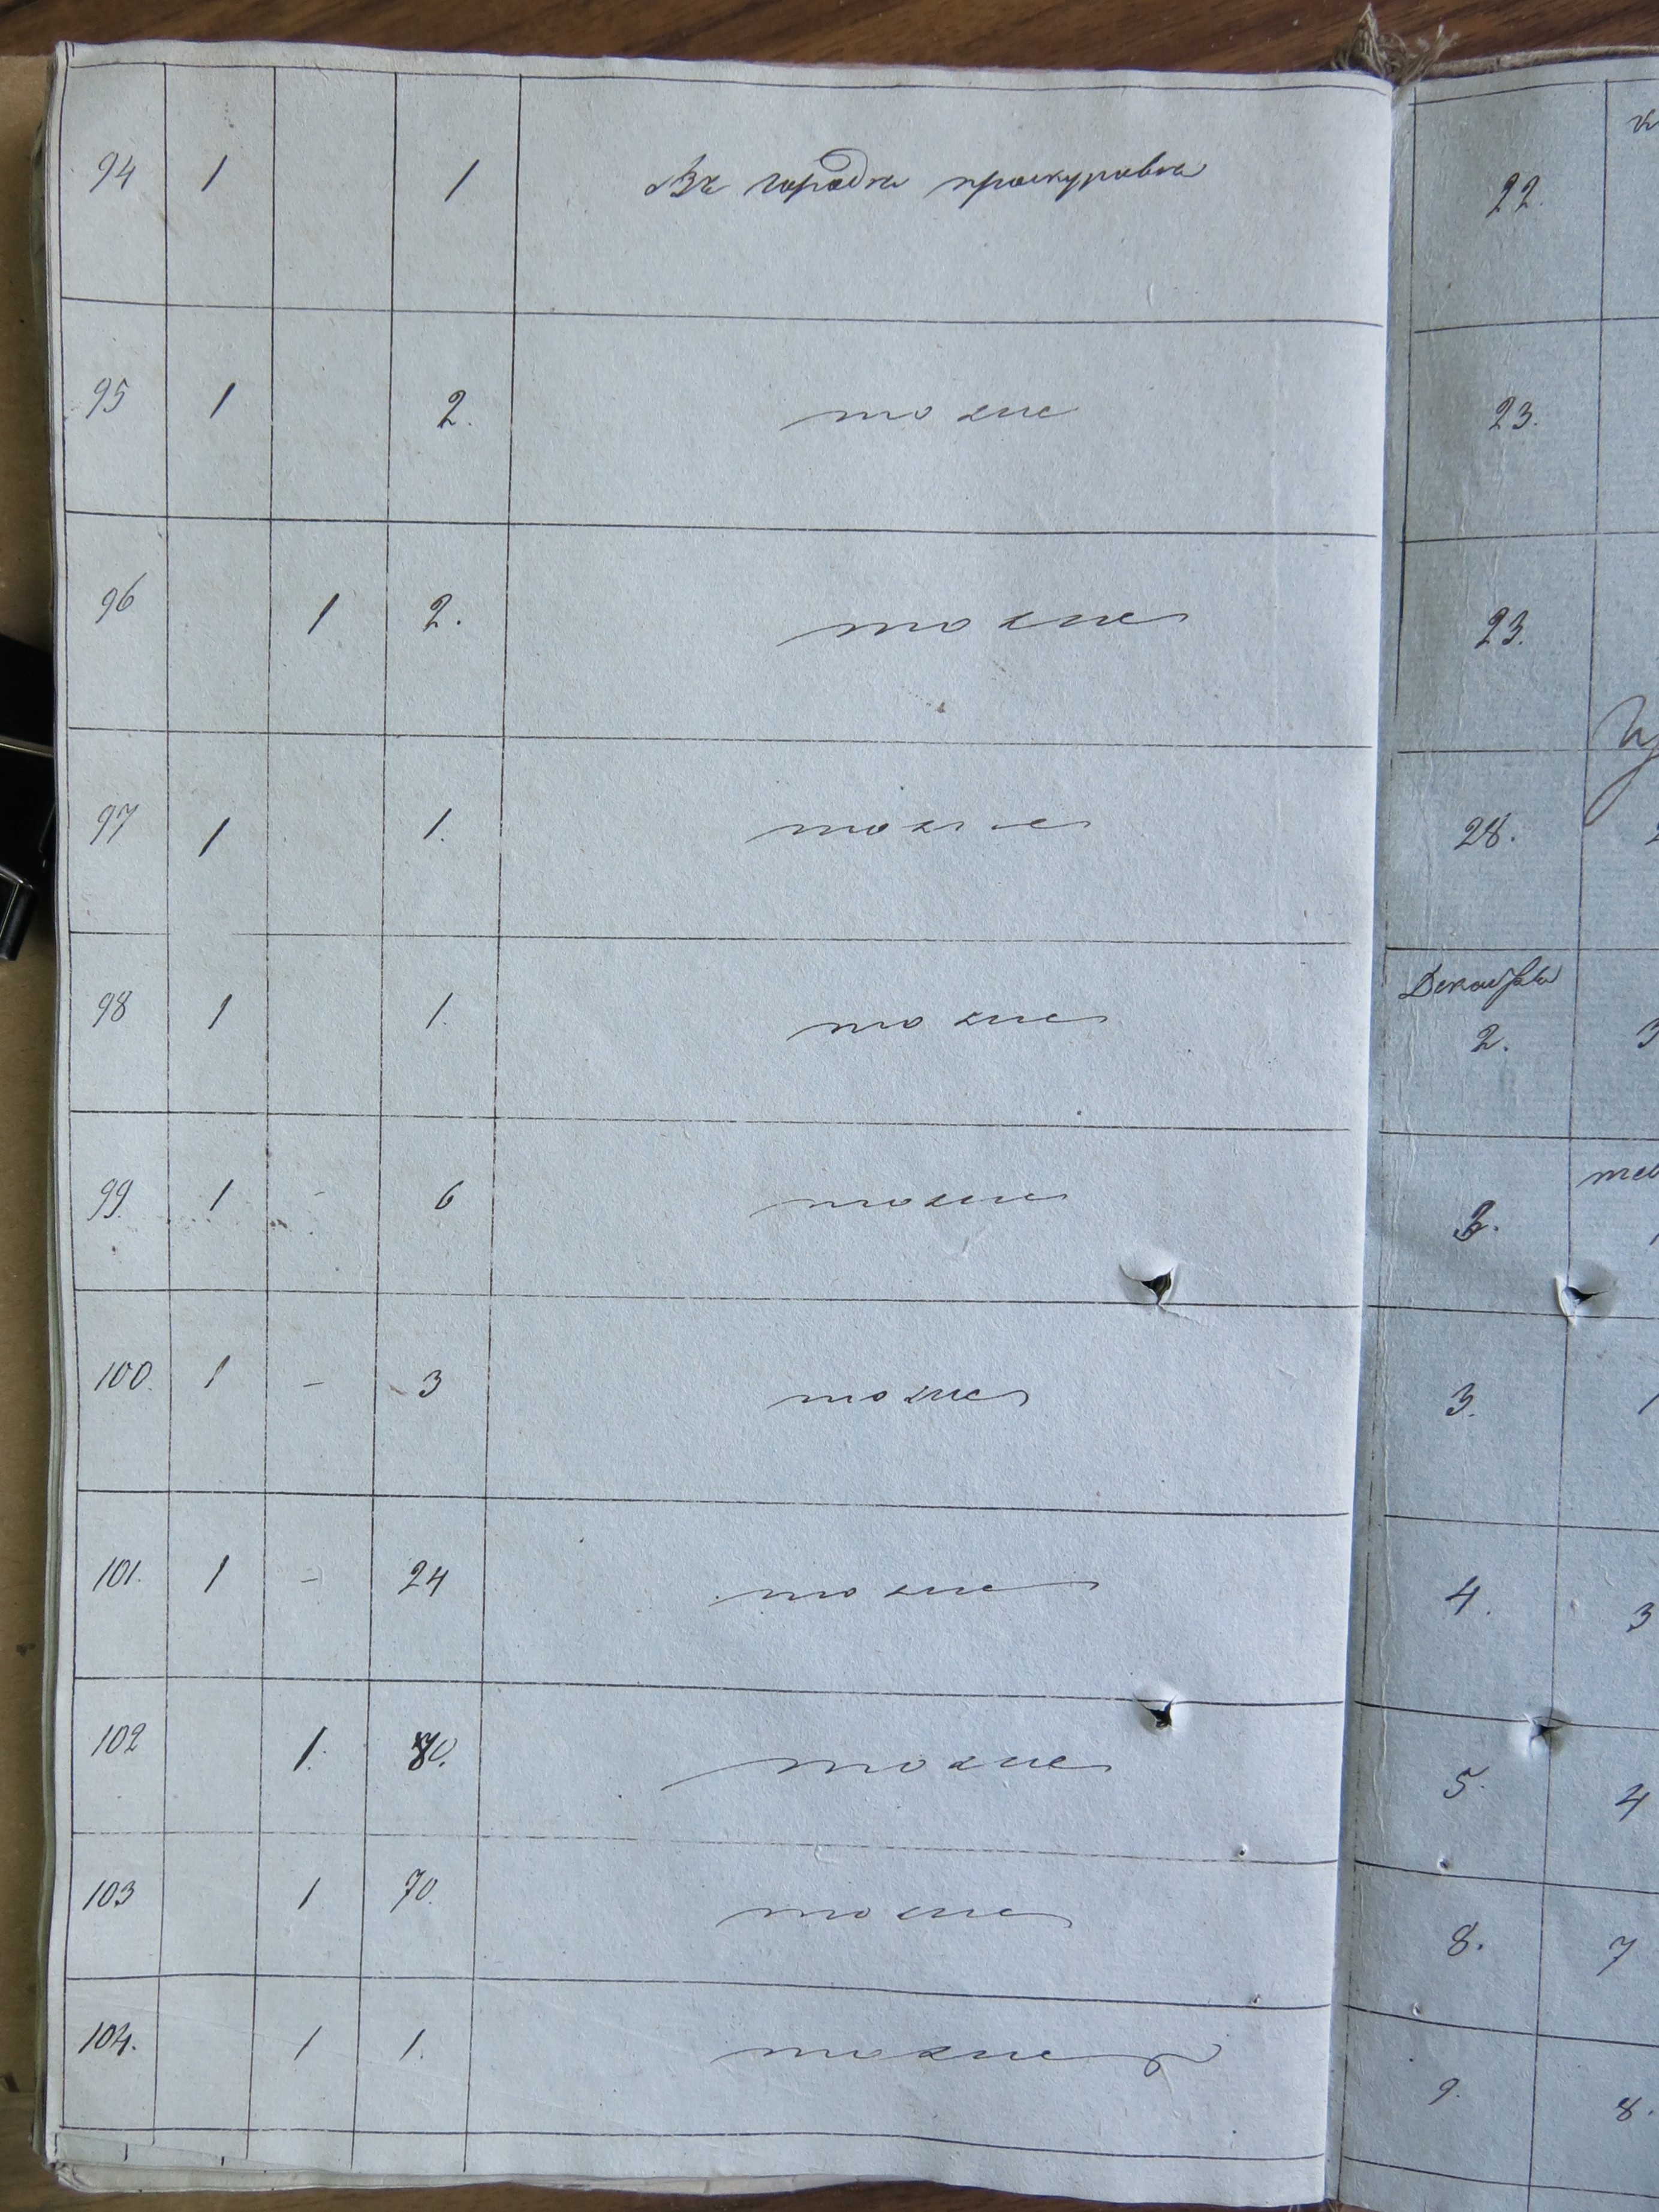 94 1 1 Въ городѣ проскуровѣ
95 1 2. тоже
96 1 2. тоже
97 1 1. тоже
98 1 1. тоже
99 1 - 6 тоже
100. 1 - 3 тоже
101. 1 - 24 тоже
102 1. 70. тоже
103 1 70. тоже
104. 1 1. тоже
22.
23.
23.
28.
Декабря
2. 3
3. 1
4. 3
5. 4
8. 7
9. 8.